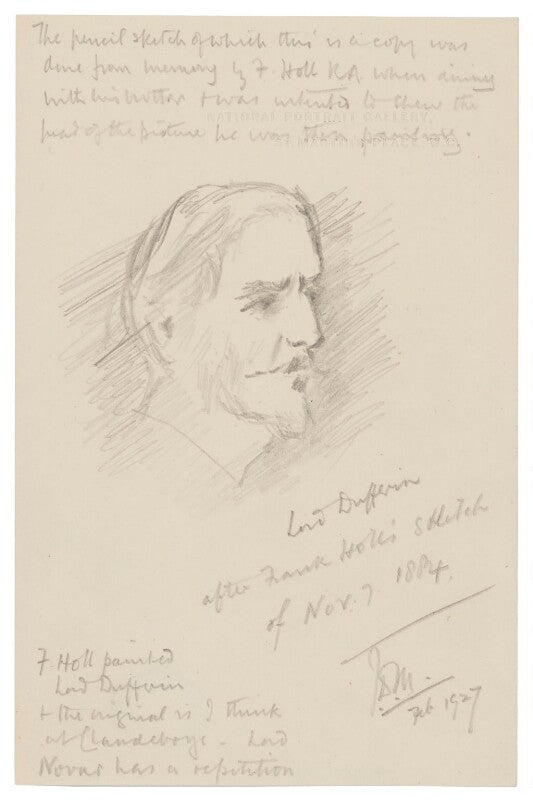 The pencil sketch of which this is a copy was
done from memory by F. Holl RA when dining
with his + was intended to shew the
head of the picture he was then painting.
NATIONAL PORTRAIT GALLERY,
ST MARTIN'S PLACE, W.C.
Lord Dufferin
after Frank Holl's Sketch
of Nov. 7. 1884.
Feb 1927
F Holl painted
Lord Dufferin
+ the original is I think
at Clandeboye - Lord
Novar has a repetition